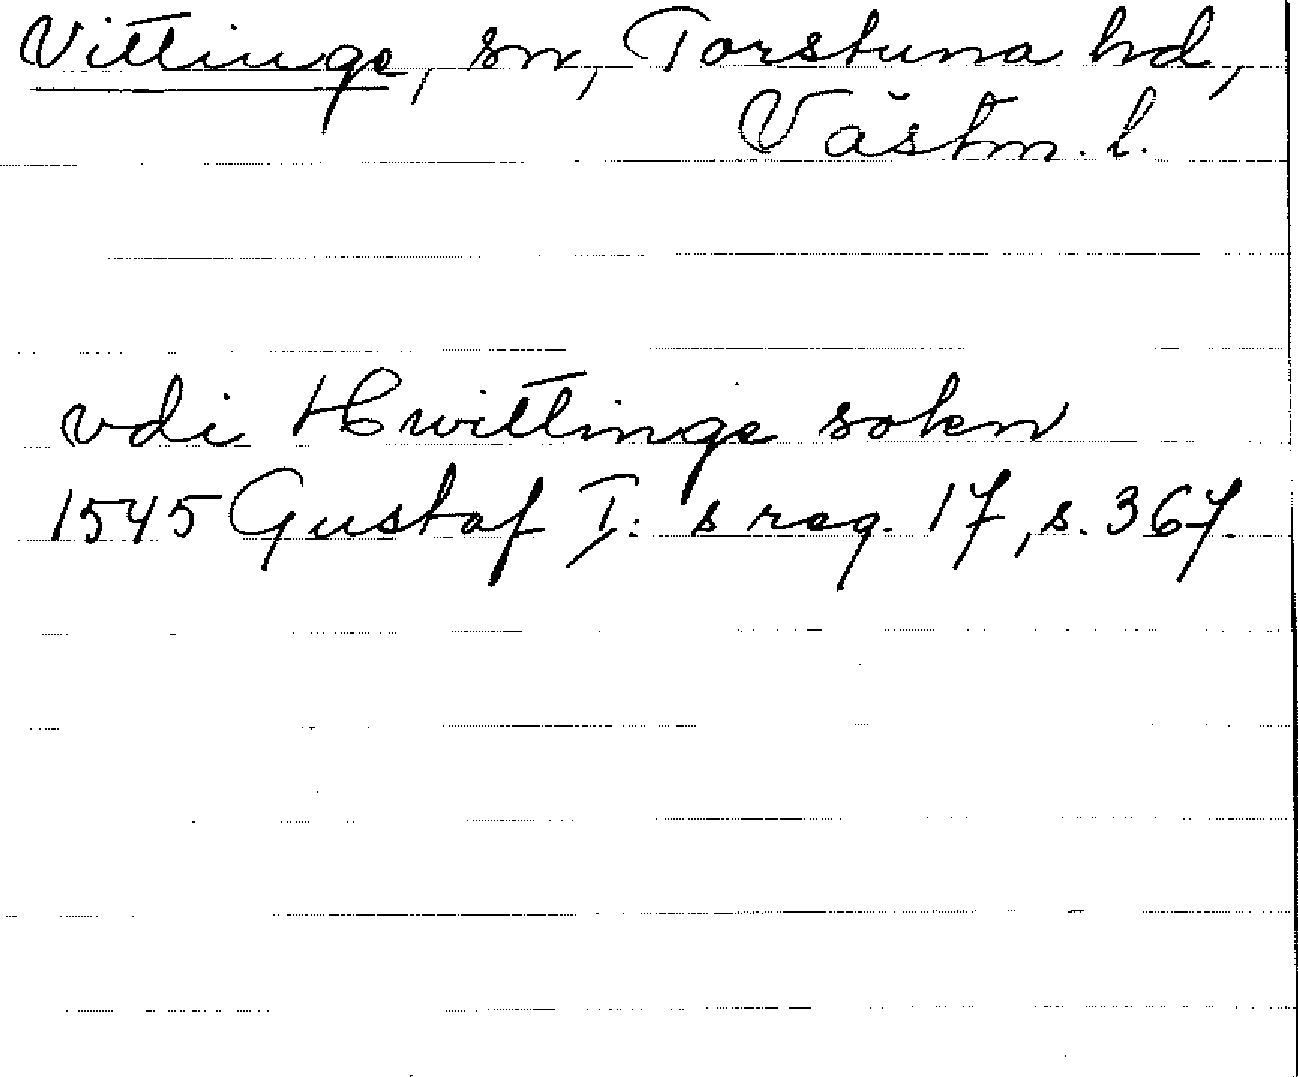 Vittinge, sn, Torstuna hd,
Västm. l.
vdi Hwittinge sokn
1545 Gustaf I:s reg. 17, s. 367.